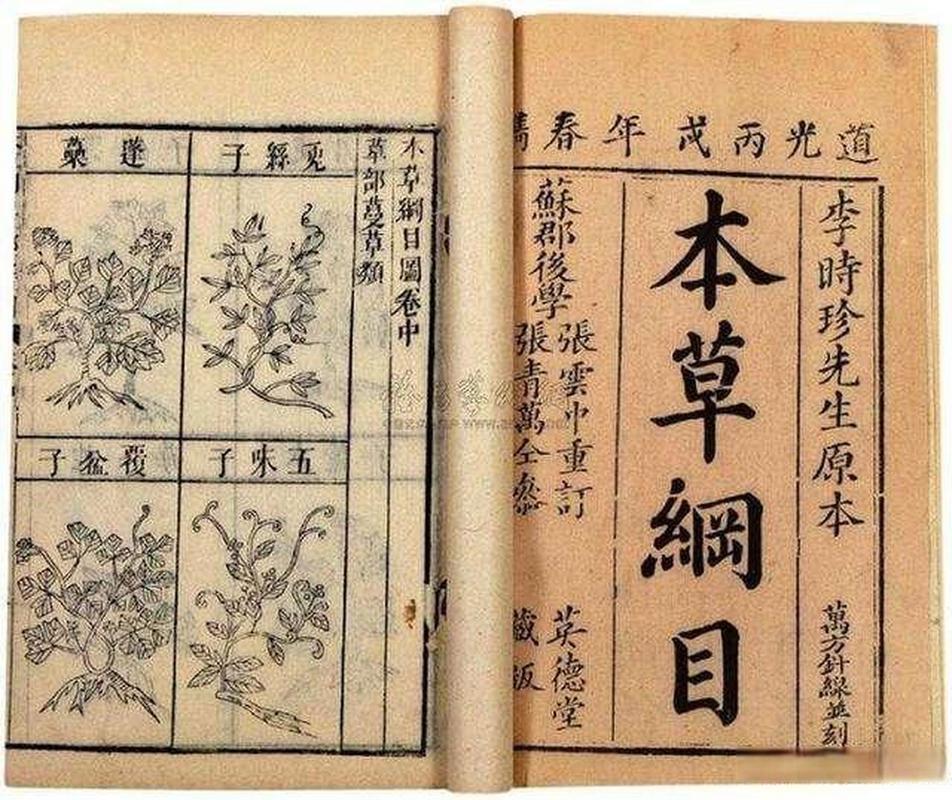 道光丙戌年春鐫
李時珍先生原本
萬方針線並刻
本草綱目
蘇郡後學
張雲中重訂
張青萬仝叅
英德堂
藏版
本草綱目圖卷中
草部蔓草類
兎絲子
蓬虆
五味子
覆盆子